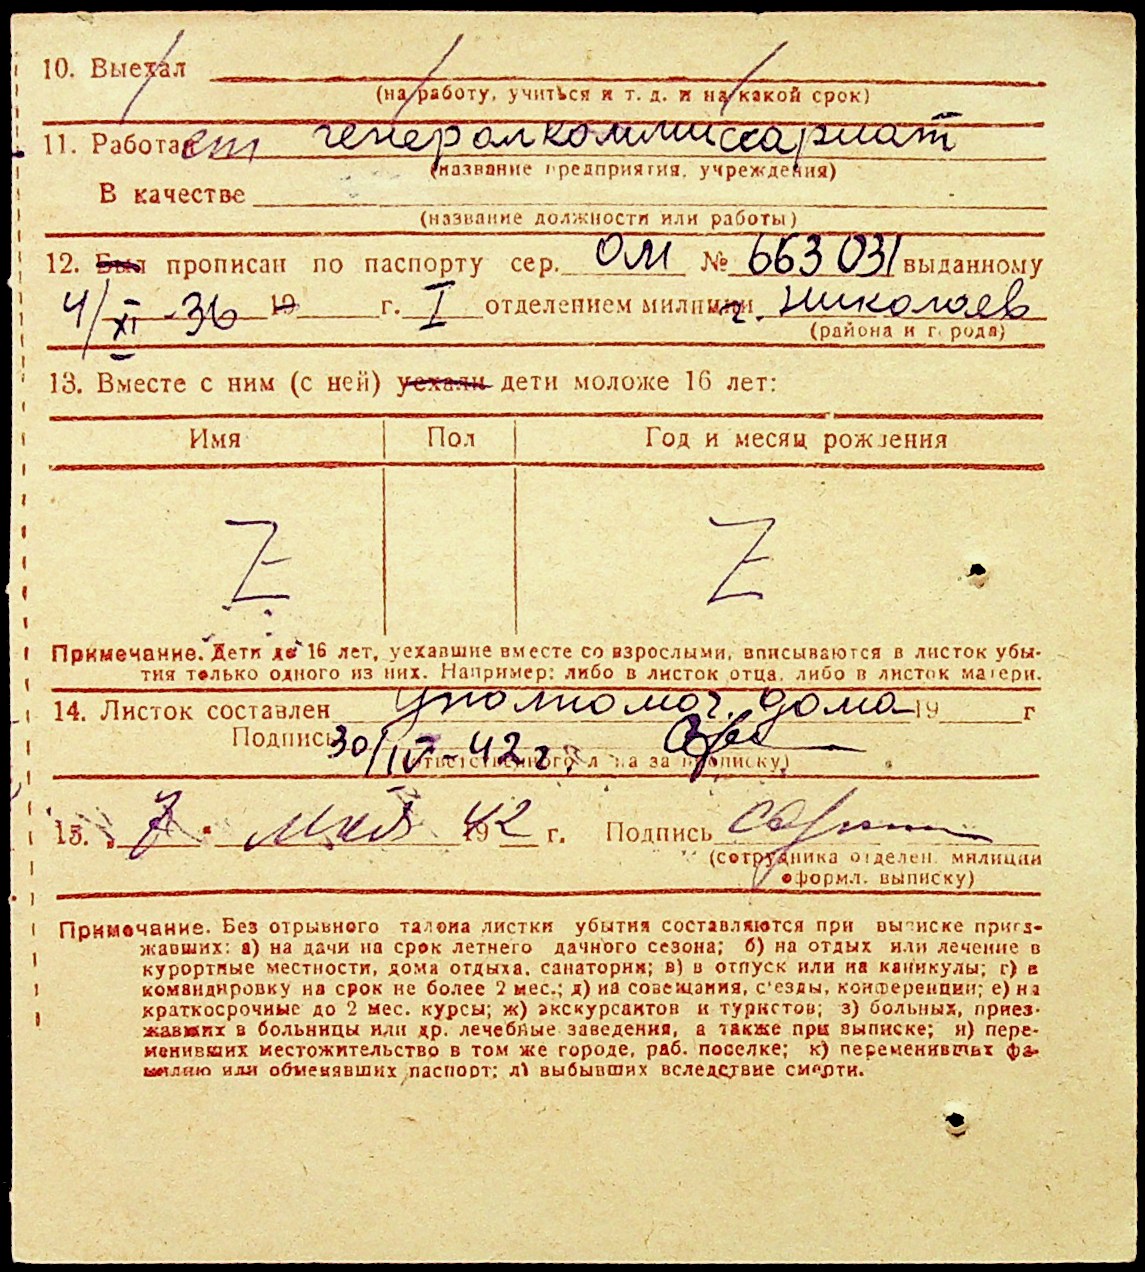 10. Выехал
(на работу, учиться и т. д. и на какой срок)
11. Работает генералкоммиссариат
(название предприятия, учреждения)
В качестве
(название должности или работы)
12. Был прописан по паспорту сер. ОМ № 663031 выданному
4/XI-36 19 г. I отделением милиции г. Николаев
(района и города)
13. Вместе с ним (с ней) уехали дети моложе 16 лет:
Имя Пол Год и месяц рождения
Z Z
Примечание. Дети до 16 лет, уехавшие вместе со взрослыми, вписываются в листок убы-
тия только одного из них. Например: либо в листок отца, либо в листок матери.
14. Листок составлен уполномоч. дома 19 г
Подпись 30/IV-42 г.
(ответственного лица за прописку)
15. 7 мая 1942 г. Подпись
(сотрудника отделен. милиции
оформл. выписку)
Примечание. Без отрывного талона листки убытия составляются при выписке приез-
жавших: а) на дачи на срок летнего дачного сезона; б) на отдых или лечение в
курортные местности, дома отдыха, санатории; в) в отпуск или на каникулы; г) в
командировку на срок не более 2 мес.; д) на совещания, с'езды, конференции; е) на
краткосрочные до 2 мес. курсы; ж) экскурсантов и туристов; з) больных, приез-
жавших в больницы или др. лечебные заведения, а также при выписке; и) пере-
менивших местожительство в том же городе, раб. поселке; к) переменивших фа-
милию или обменявших паспорт; л) выбывших вследствие смерти.